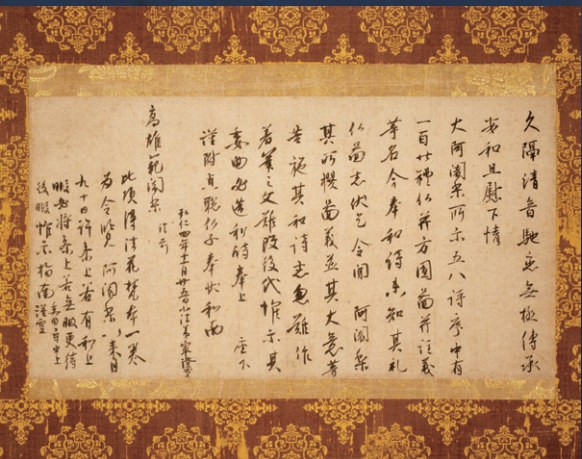 久隔清音馳恋無極傳承
安和且慰下情
大阿闍梨所示五八詩序中有
一百廿禮仏并方圓圖并註義
等名今奉和詩未知其礼
仏圖者伏乞令聞 阿闍梨
其所撰圖義并其大意等
告施其和詩者忽難作
著筆之文難改後代惟示其
委曲必造和詩奉上 座下
謹附貞聡仏子奉状和南
弘仁四年十一月廿五日小法弟最澄
高雄範闍梨
法前
此頃得法花梵本一巻
為令覧 阿闍梨以来月
九十日許参上若有和上
暇必将参上若無暇更待
後暇惟示指南謹空